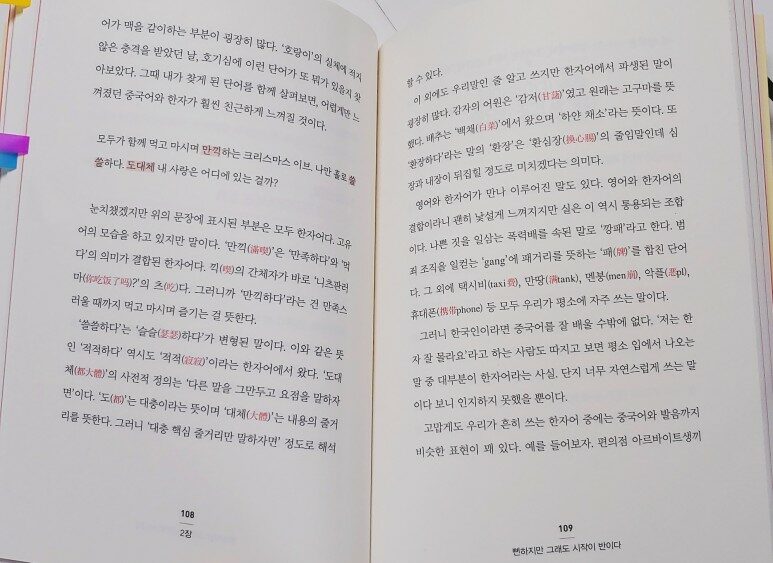 어가 맥을 같이하는 부분이 굉장히 많다. ‘호랑이’의 실체에 적지
않은 충격을 받았던 날, 호기심에 이런 단어가 또 뭐가 있을지 찾
아보았다. 그때 내가 찾게 된 단어를 함께 살펴보면, 어렵게만 느
껴졌던 중국어와 한자가 훨씬 친근하게 느껴질 것이다.
모두가 함께 먹고 마시며 만끽하는 크리스마스 이브. 나만 홀로 쓸
쓸하다. 도대체 내 사랑은 어디에 있는 걸까?
눈치챘겠지만 위의 문장에 표시된 부분은 모두 한자어다. 고유
어의 모습을 하고 있지만 말이다. ‘만끽(滿喫)’은 ‘만족하다’와 ‘먹
다’의 의미가 결합된 한자어다. 끽(喫)의 간체자가 바로 ‘니츠판러
마(你吃饭了吗)?’의 츠(吃)다. 그러니까 ‘만끽하다’라는 건 만족스
러울 때까지 먹고 마시며 즐기는 걸 뜻한다.
‘쓸쓸하다’는 ‘슬슬(瑟瑟)하다’가 변형된 말이다. 이와 같은 뜻
인 ‘적적하다’ 역시도 ‘적적(寂寂)’이라는 한자어에서 왔다. ‘도대
체(都大體)’의 사전적 정의는 ‘다른 말을 그만두고 요점을 말하자
면’이다. ‘도(都)’는 대충이라는 뜻이며 ‘대체(大體)’는 내용의 줄거
리를 뜻한다. 그러니 ‘대충 핵심 줄거리만 말하자면’ 정도로 해석
108
2장
할 수 있다.
이 외에도 우리말인 줄 알고 쓰지만 한자어에서 파생된 말이
굉장히 많다. 감자의 어원은 ‘감저(甘藷)’였고 원래는 고구마를 뜻
했다. 배추는 ‘백채(白菜)’에서 왔으며 ‘하얀 채소’라는 뜻이다. 또
‘환장하다’라는 말의 ‘환장’은 ‘환심장(換心腸)’의 줄임말인데 심
장과 내장이 뒤집힐 정도로 미치겠다는 의미다.
영어와 한자어가 만나 이루어진 말도 있다. 영어와 한자어의
결합이라니 괜히 낯설게 느껴지지만 실은 이 역시 통용되는 조합
이다. 나쁜 짓을 일삼는 폭력배를 속된 말로 ‘깡패’라고 한다. 범
죄 조직을 일컫는 ‘gang’에 패거리를 뜻하는 ‘패(牌)’를 합친 단어
다. 그 외에 택시비(taxi費), 만땅(滿tank), 멘붕(men崩), 악플(惡pl),
휴대폰(携帶phone) 등 모두 우리가 평소에 자주 쓰는 말이다.
그러니 한국인이라면 중국어를 잘 배울 수밖에 없다. ‘저는 한
자 잘 몰라요’라고 하는 사람도 따지고 보면 평소 입에서 나오는
말 중 대부분이 한자어라는 사실. 단지 너무 자연스럽게 쓰는 말
이다 보니 인지하지 못했을 뿐이다.
고맙게도 우리가 흔히 쓰는 한자어 중에는 중국어와 발음까지
비슷한 표현이 꽤 있다. 예를 들어보자. 편의점 아르바이트생끼
109
뻔하지만 그래도 시작이 반이다